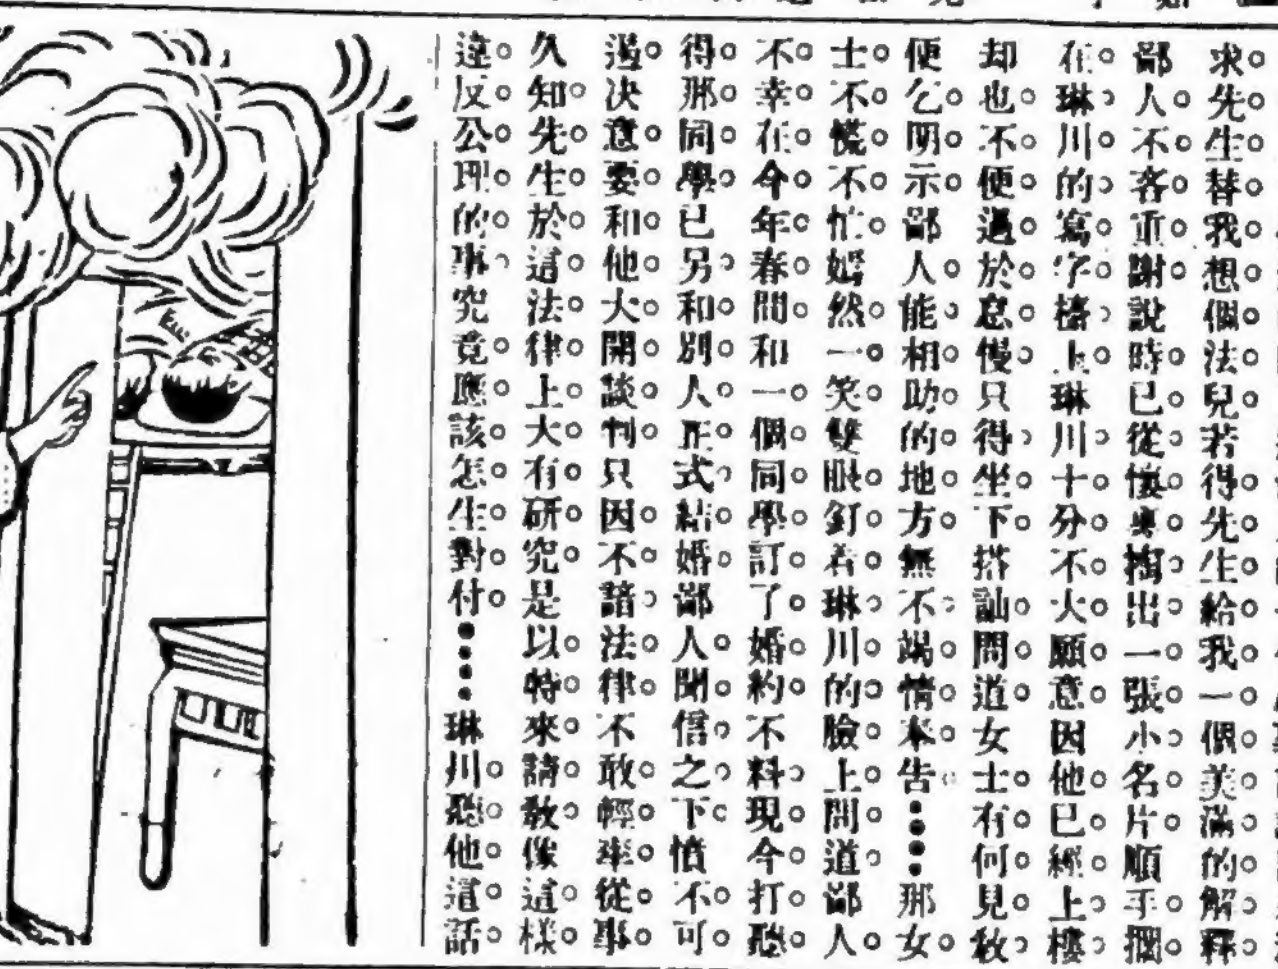 求先生替我想個法兒若得先生給我一個美滿的解釋
鄙人不吝重謝說時已從懷裏掏出一張小名片順手擱
在琳川的寫字檯上琳川十分不大願意因他已經上樓
却也不便過於怠慢只得坐下搭訕問道女士有何見敎
便乞明示鄙人能相助的地方無不竭情奉告……那女
士不慌不忙嫣然一笑雙眼釘着琳川的臉上開道鄙人
不幸在今年春間和一個同學訂了婚約不料現今打聽
得那同學已另和別人正式結婚鄙人聞信之下憤不可
遏决意要和他大開談判只因不諳法律不敢輕率從事
久知先生於這法律上大有研究是以特來請敎像這樣
違反公理的事究竟應該怎生對付……琳川聽他這話